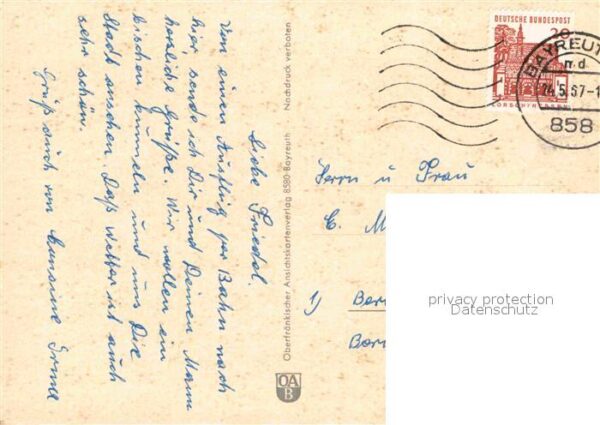 Liebe Friedel.
Von einen Ausflug per Bahn nach
hier sende ich Dir und Deinen Mann
herzliche Grüße. Wir wollen ein
bischen bummeln und uns die
Stadt ansehen. Das Wetter ist auch
sehr schön.
Grüß dich von Cousine Erna
Oberfränkischer Ansichtskartenverlag 8580 Bayreuth Nachdruck verboten
OA
B
DEUTSCHE BUNDESPOST
20
LORSCH/HESSEN
BAYREUTH
24.5.67-1
858
Herrn u Frau
C. M
1) Ber
Bor
privacy protection
Datenschutz